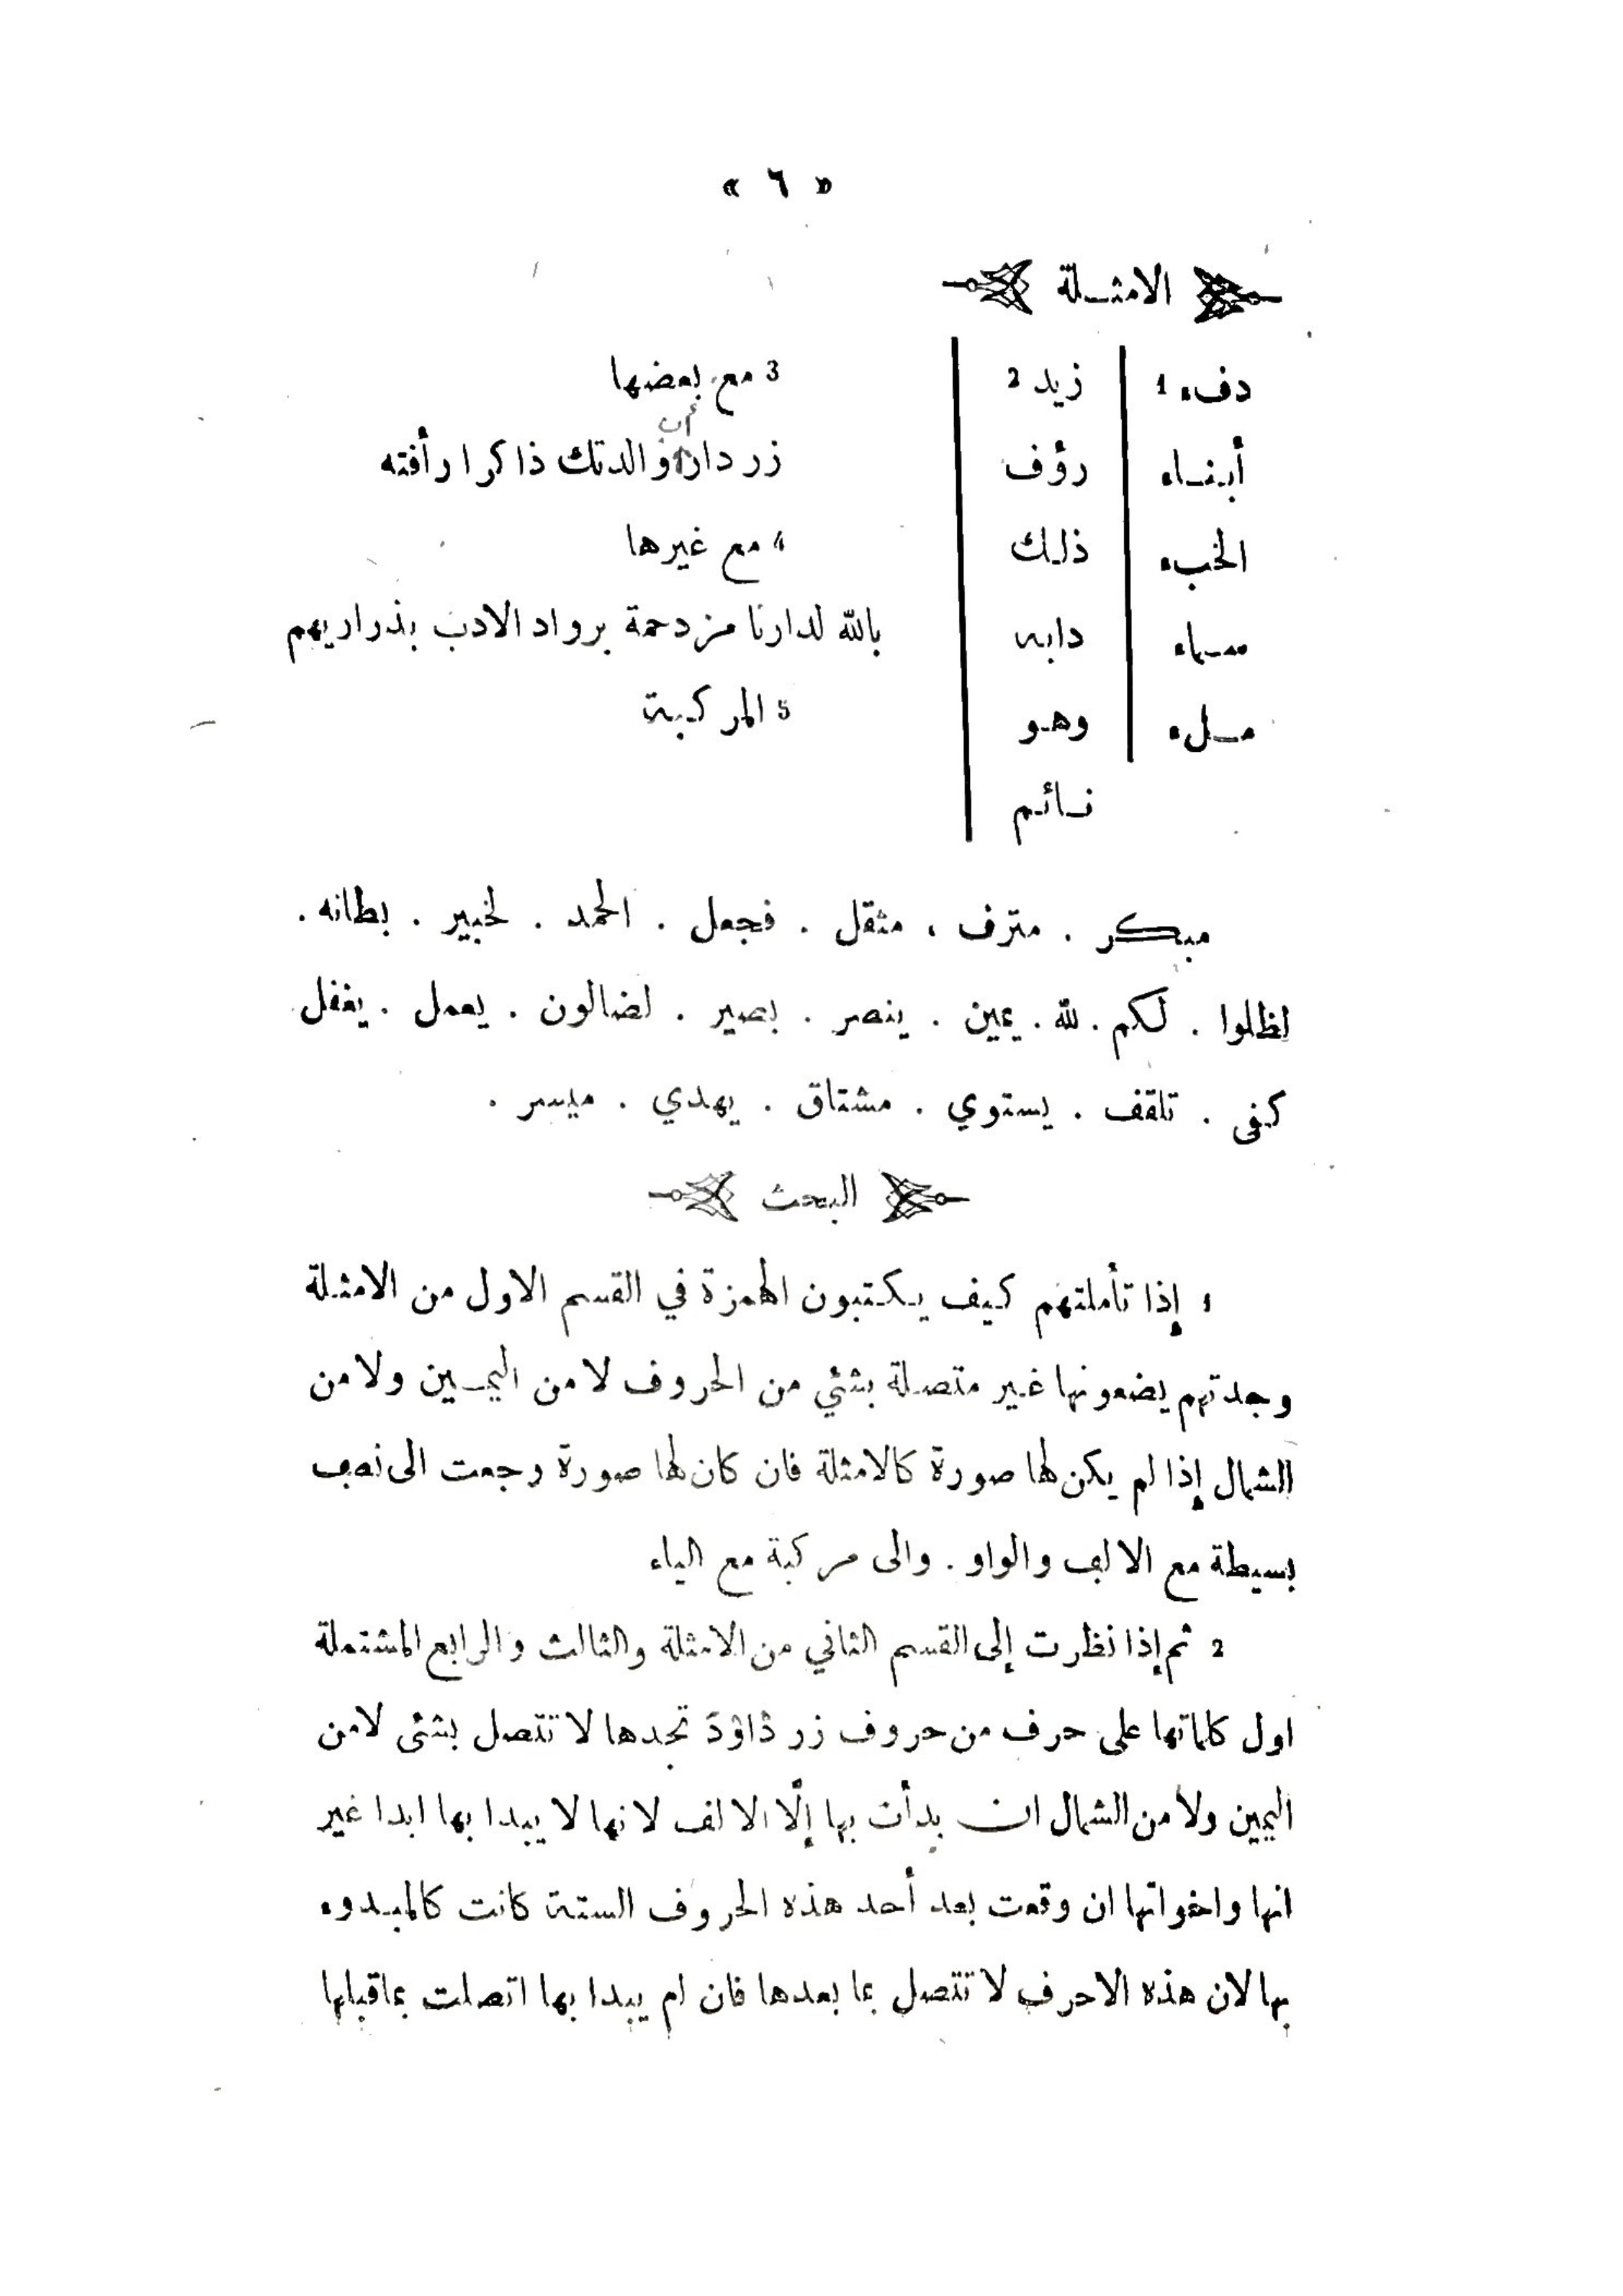 « ٦ »
الامثـلة
دفء 1
أبنـاء
الخبء
سمـاء
مـلء
زيد 2
رؤف
ذلك
دابه
وهو
نـائم
3 مع بعضها
زر دار والدتك ذاكرا رأفته
4 مع غيرها
بالله لدارنا مزدحمة برواد الادب بذراريهم
5 المركبة
مبكر . مترف ، مثقل . فجعل . الحمد . لخبير . بطانه .
لظلوا . لكم . لله . يمين . ينصر . بصير . لضالون . يعمل . يغفل
كفى . تلقف . يستوي . مشتاق . يهدي . ميسر .
البحث
1 إذا تأملتهم كيف يكتبون الهمزة في القسم الاول من الامثلة
وجدتهم يضعونها غير متصلة بشئي من الحروف لا من اليمـين ولا من
الشمال إذا لم يكن لها صورة كالامثلة فان كان لها صورة رجعت الى نصب
بسيطة مع الالف والواو . والى مركبة مع الياء
2 ثم إذا نظرت إلى القسم الثاني من الامثلة والثالث والرابع المشتملة
اول كلماتها على حرف من حروف زر ذاؤد تجدها لا تتصل بشئى لا من
اليمين ولا من الشمال ان بدأت بها إلّا الالف لانها لا يبدا بها ابدا غير
انها واخواتها ان وقعت بعد أحد هذه الحروف الستة كانت كالمبدوء
بها لان هذه الاحرف لا تتصل بما بعدها فان لم يبدا بها اتصلت بماقبلها